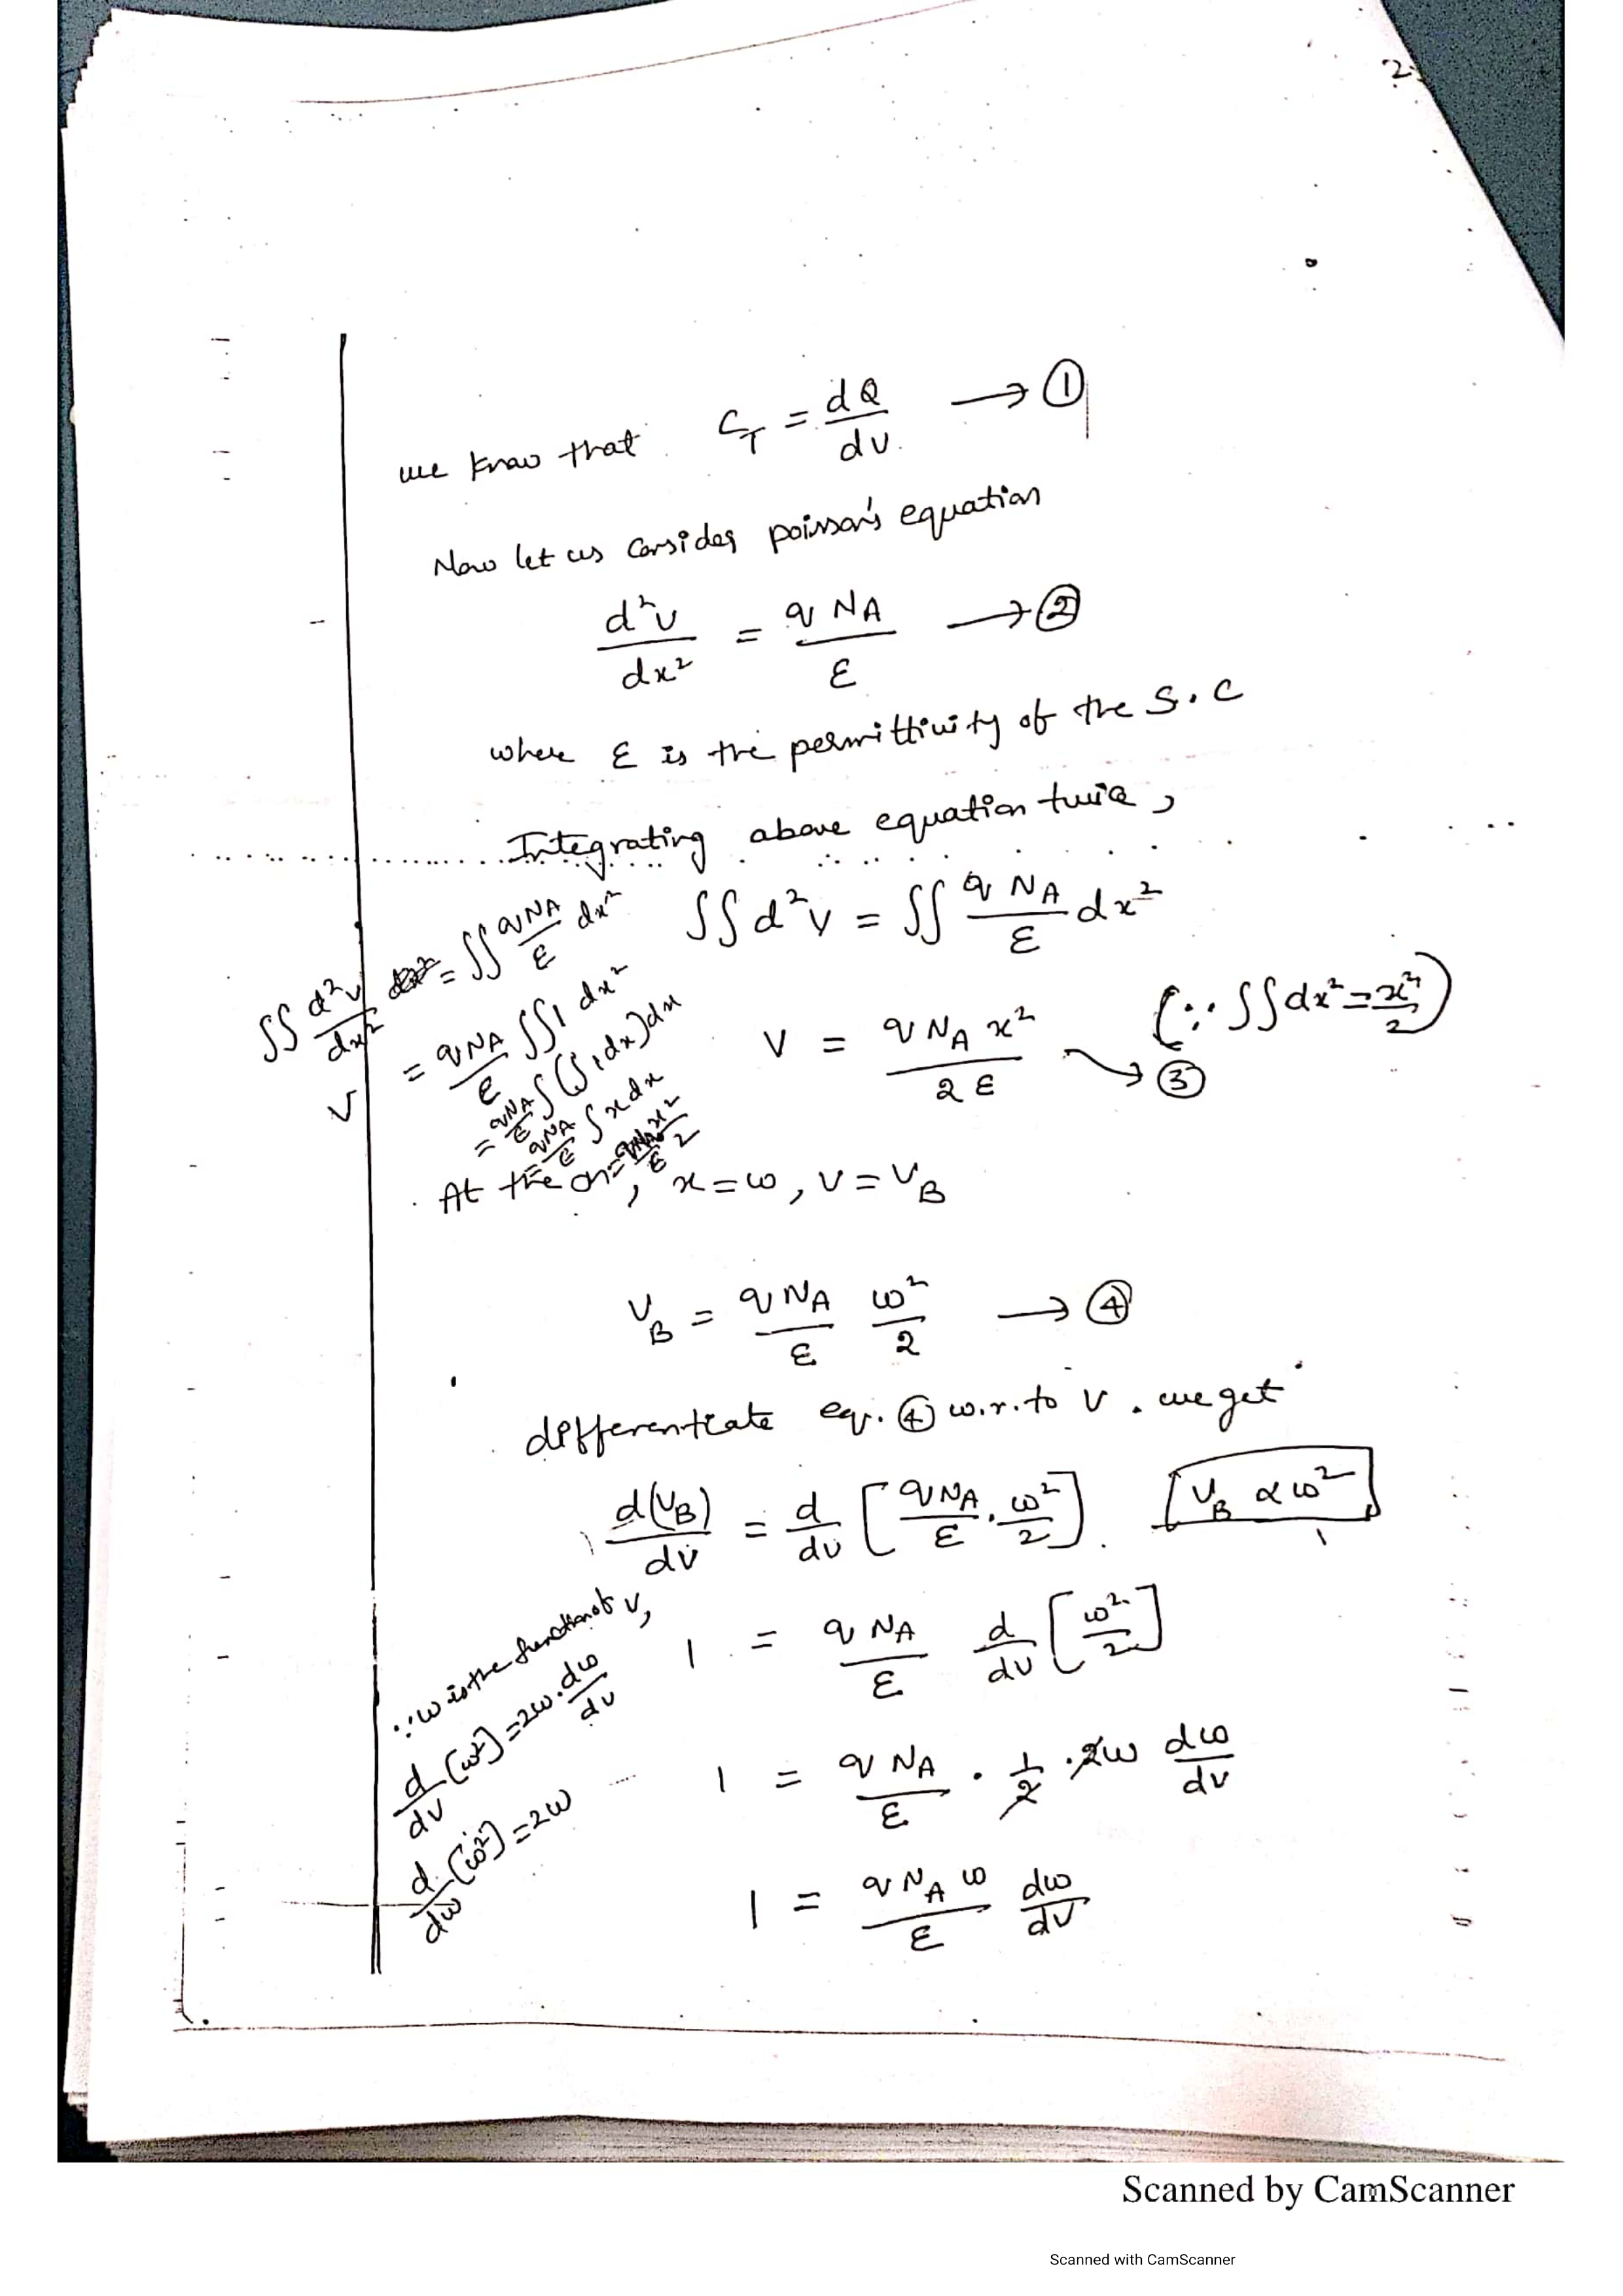 2
we know that C_T = dQ/dv → ①
Now let us consider poisson's equation
d²v/dx² = qN_A/ε → ②
where ε is the permittivity of the S.C
Integrating above equation twice,
∫∫ d²v = ∫∫ qN_A/ε dx²
V = qN_A x²/2ε → ③ (∵ ∫∫dx² = x²/2)
∫∫ d²v/dx² = ∫∫ qN_A/ε dx²
V = qN_A/ε ∫∫1 dx²
= qN_A/ε ∫(∫1dx)dx
= qN_A/ε ∫x dx
= qN_A/ε x²/2
At the , x = ω, v = V_B
V_B = qN_A/ε ω²/2 → ④
differentiate eq. ④ w.r.to v. we get
d(V_B)/dv = d/dv [qN_A/ε . ω²/2] V_B ∝ ω²
1 = qN_A/ε d/dv [ω²/2]
∵ ω is the function of v,
d/dv (ω²) = 2ω. dω/dv
d/dω (ω²) = 2ω
1 = qN_A/ε . 1/2 . 2ω dω/dv
1 = qN_A ω/ε dω/dv
Scanned by CamScanner
Scanned with CamScanner